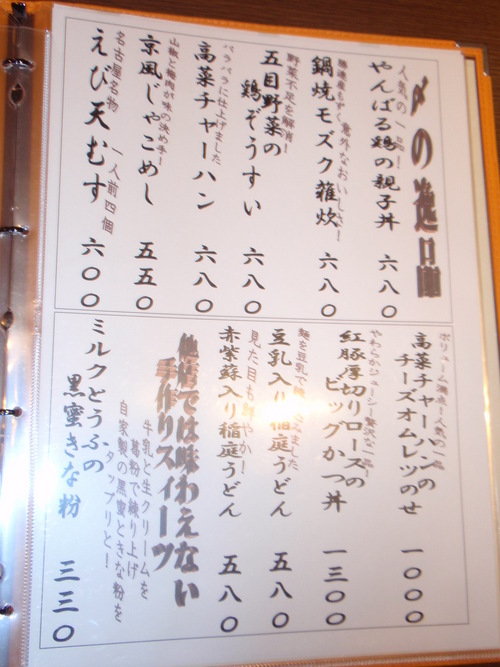 〆の逸品
人気の一品!
やんばる鶏の親子丼 六八〇
勝連産もずく意外なおいしさ!
鍋焼モズク雑炊 六八〇
野菜不足を解消!
五目野菜の
鶏ぞうすい 六八〇
パラパラに仕上げました
高菜チャーハン 六八〇
山椒と梅肉が味の決め手!
京風じゃこめし 五五〇
名古屋名物 一人前四個
えび天むす 六〇〇
ボリューム満点!人気の一品
高菜チャーハンの
チーズオムレツのせ 一〇〇〇
やわらかジューシー贅沢な一品!
紅豚厚切りロースの
ビッグかつ丼 一三〇〇
麺を豆乳で練り込みました
豆乳入り稲庭うどん 五八〇
見た目も鮮やか!
赤紫蘇入り稲庭うどん 五八〇
他店では味わえない
手作りスイーツ
牛乳と生クリームを
葛粉で練り上げ
自家製の黒蜜ときな粉を
タップリと!
ミルクどうふの
黒蜜きな粉 三三〇